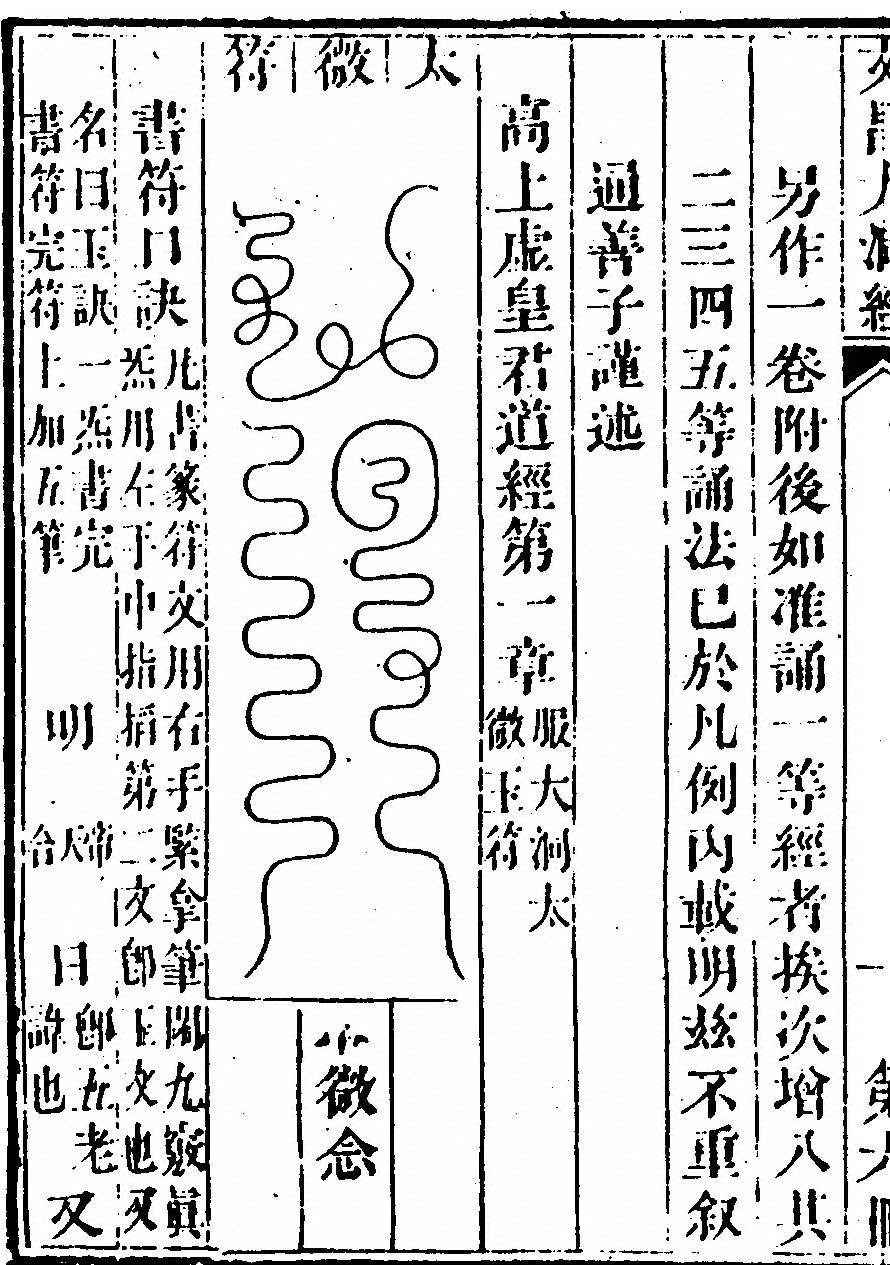 另作一卷附後如准誦一等經者挨次增入其
二三四五等誦法已於凡例內載明茲不重叙
通善子謹述
高上虛皇君道經第一章
服大洞太
微玉符
太微符
微念
書符口訣
凡書篆符文用右手緊拿筆閣九嶷真
炁用左手中指掐第二文即玉文也又
名曰玉訣一炁書完
書符完符上加五筆
明
帝
天
合
日
即五老
諱也
又